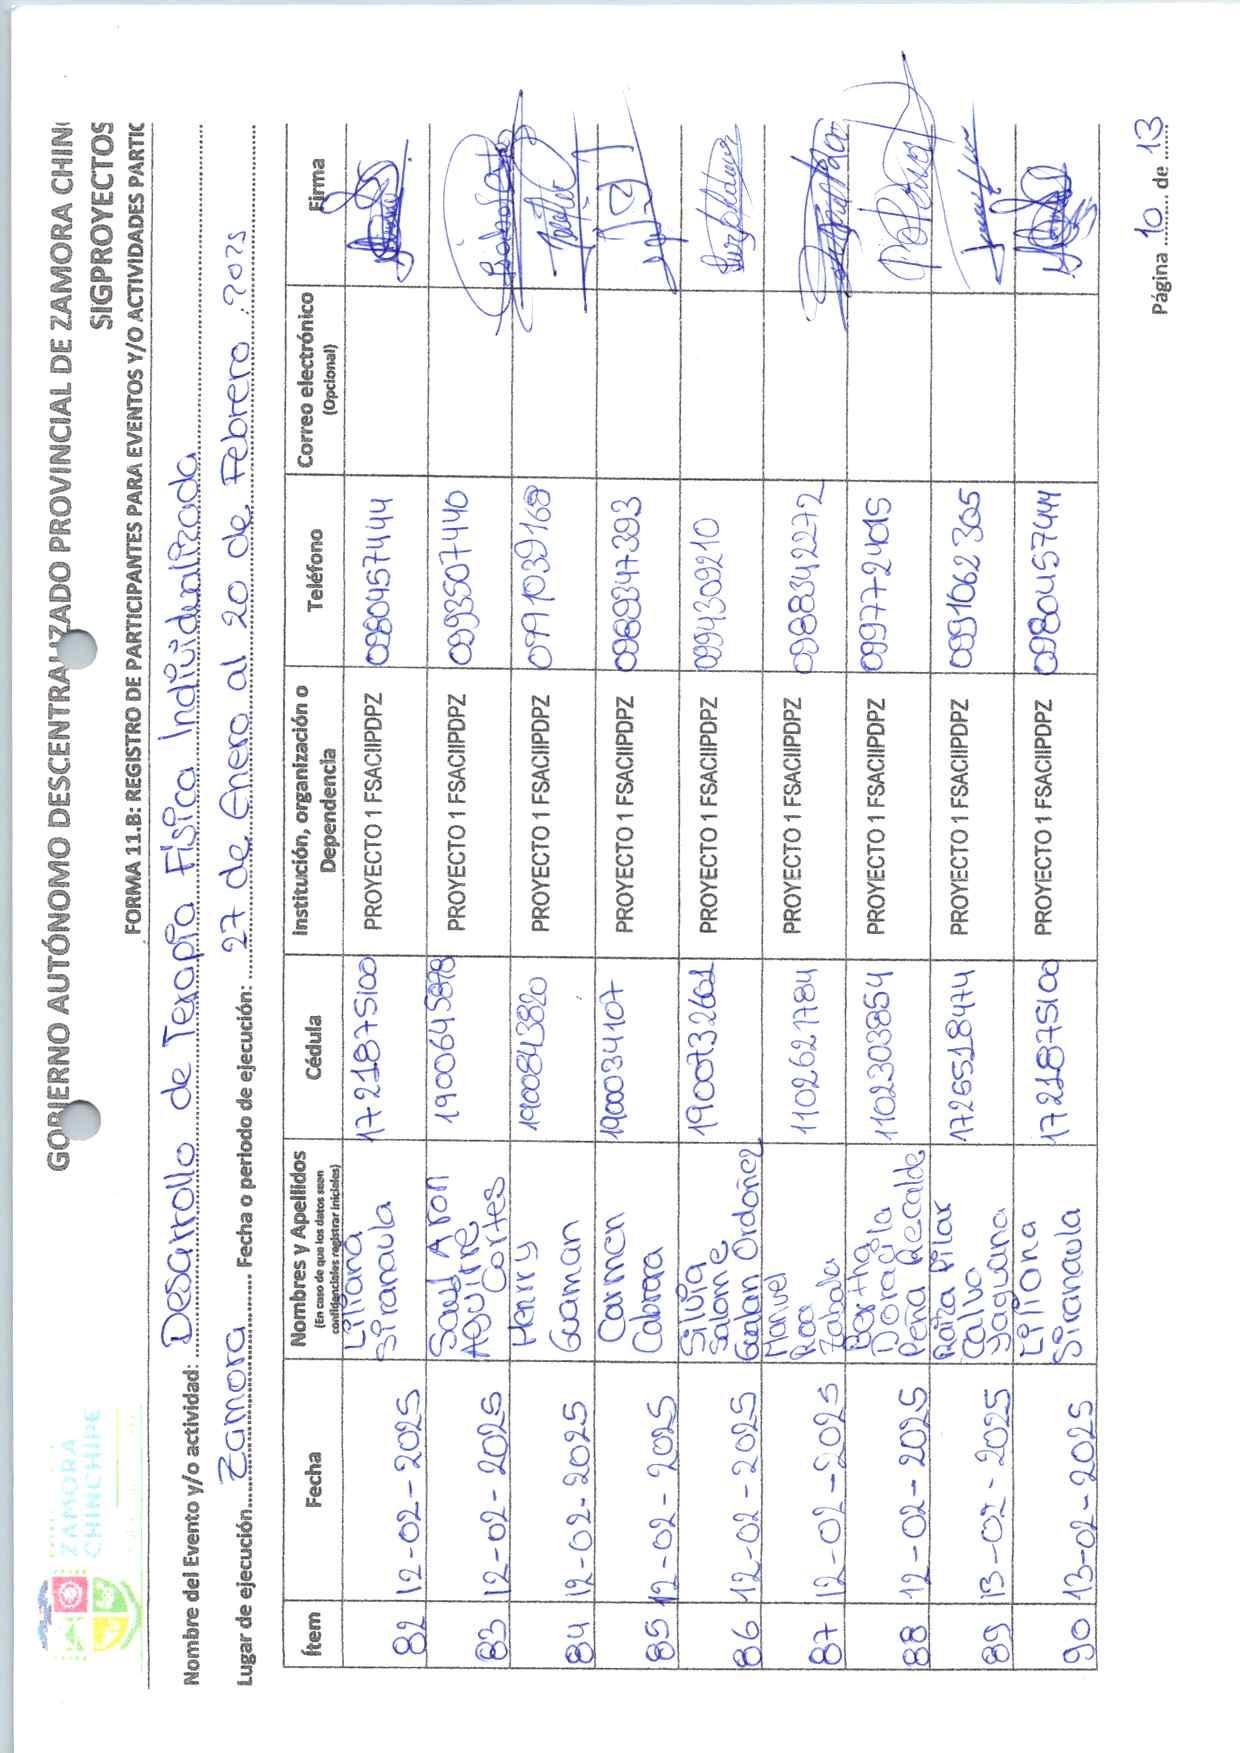 ZAMORA
CHINCHIPE
GOBIERNO AUTÓNOMO DESCENTRALIZADO PROVINCIAL DE ZAMORA CHIN
SIGPROYECTOS
FORMA 11.B: REGISTRO DE PARTICIPANTES PARA EVENTOS Y/O ACTIVIDADES PARTIC
Nombre del Evento y/o actividad: Desarrollo de Terapia Física Individualizada
Lugar de ejecución Zamora Fecha o periodo de ejecución: 27 de Enero al 20 de Febrero 2025
Ítem Fecha Nombres y Apellidos (En caso de que los datos sean confidenciales registrar iniciales) Cédula Institución, organización o Dependencia Teléfono Correo electrónico (Opcional) Firma
82 12-02-2025 Liliana Siranaula 1721875100 PROYECTO 1 FSACIIPDPZ 0980457444
83 12-02-2025 Saul Aron Aguirre Cortes 1900645878 PROYECTO 1 FSACIIPDPZ 0993507440
84 12-02-2025 Henrry Guaman 1900843820 PROYECTO 1 FSACIIPDPZ 0991039169
85 12-02-2025 Carmen Cabrera 1900034107 PROYECTO 1 FSACIIPDPZ 0989347393
86 12-02-2025 Silvia Salome Gualan Ordoñez 1900732602 PROYECTO 1 FSACIIPDPZ 0994309210
87 12-02-2025 Manuel Roa Zabala 1102621784 PROYECTO 1 FSACIIPDPZ 0988342272
88 12-02-2025 Bertha Doragila Peña Recalde 1102303854 PROYECTO 1 FSACIIPDPZ 0997724015
89 13-02-2025 Pilar Calva Yaguana 1725518474 PROYECTO 1 FSACIIPDPZ 0991062305
90 13-02-2025 Liliana Siranaula 1721875100 PROYECTO 1 FSACIIPDPZ 0980457444
Página 10 de 13